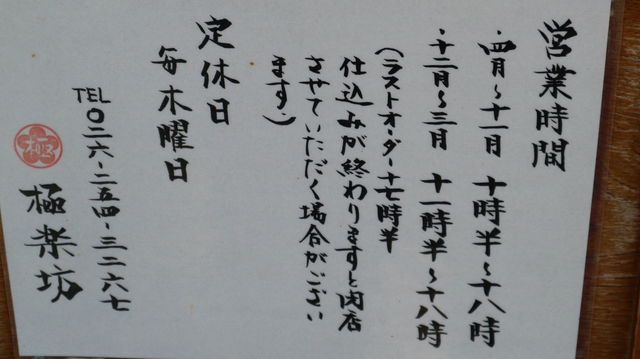 営業時間
・四月～十一月 十時半～十八時
・十二月～三月 十一時半～十八時
(ラストオーダー十七時半
仕込みが終わりますと閉店
させていただく場合がござい
ます。)
定休日
毎木曜日
TEL〇二六-二五四-三二六七
極楽坊
極